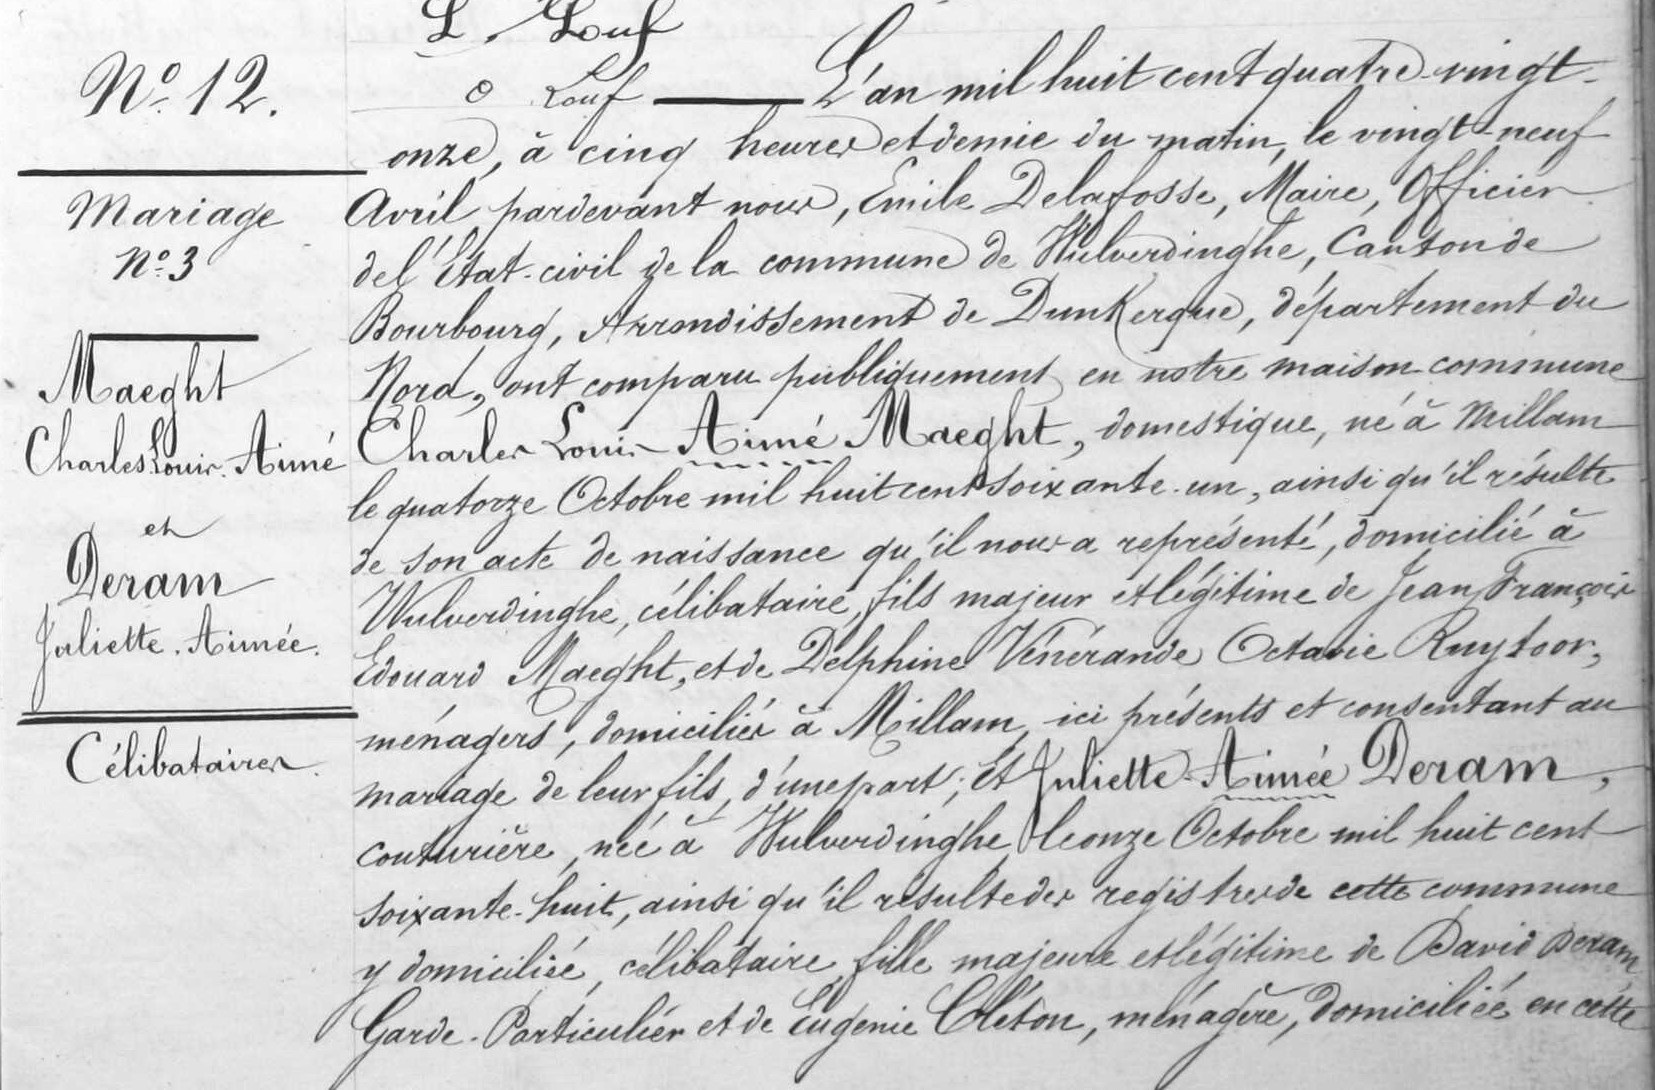 L. Louf
Nº 12.
o Louf — L'an mil huit cent quatre-vingt-
onze, à cinq heures et demie du matin, le vingt-neuf
Mariage
Nº 3
Avril pardevant nous, Emile Delafosse, Maire, Officier
de l'Etat-civil de la commune de Wulverdinghe, Canton de
Bourbourg, Arrondissement de Dunkerque, département du
Nord, ont comparu publiquement en notre maison commune
Maeght
Charles Louis Aimé
et
Deram
Juliette. Aimée.
Célibataires
Charles Louis Aimé Maeght, domestique, né à Millam
le quatorze Octobre mil huit cent soixante-un, ainsi qu'il résulte
de son acte de naissance qu'il nous a représenté, domicilié à
Wulverdinghe, célibataire, fils majeur et légitime de Jean François
Edouard Maeght, et de Delphine Vénérande Octavie Ruytoor,
ménagers, domiciliés à Millam, ici présents et consentant au
mariage de leur fils, d'une part; Et Juliette Aimée Deram,
couturière, née à Wulverdinghe, le onze Octobre mil huit cent
soixante-huit, ainsi qu'il résulte des registres de cette commune
y domiciliée, célibataire, fille majeure et légitime de David Deram
Garde-Particulier et de Eugenie Cléton, ménagère, domiciliée en cette